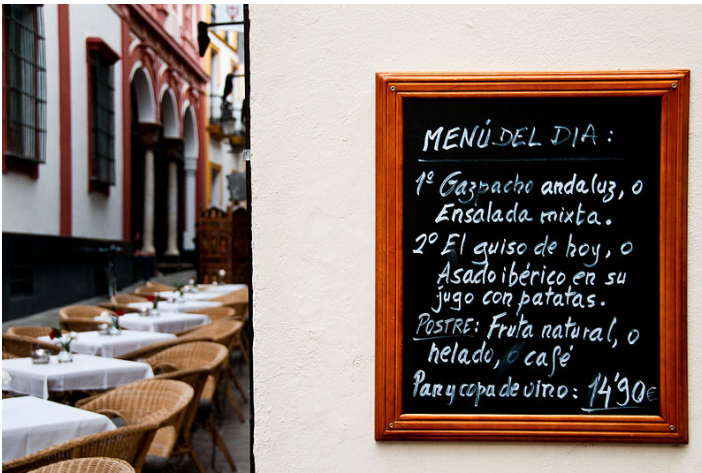 MENÚ DEL DIA :
1º Gazpacho andaluz, o
Ensalada mixta.
2º El guiso de hoy, o
Asado ibérico en su
jugo con patatas.
POSTRE: Fruta natural, o
helado, o café
Pan y copa de vino : 14'90€